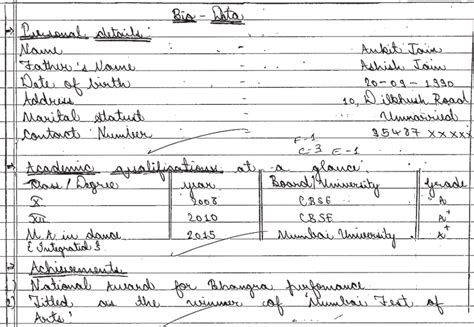 Bio - Data
→ Personal details:
Name - Ankit Jain
Father's Name - Ashish Jain
Date of birth - 20-09-1990
Address - 10, Dilkhush Road
Marital Status - Unmarried
Contact Number - 95487 xxxxx
F-1
C-3 E-1
→ Academic qualifications at a glance
Class / Degree year Board/University Grade
X 2008 CBSE A+
XII 2010 CBSE A+
M.A in dance 2015 Mumbai University A+
{ Integrated }
→ Achievements
National Award for Bhangra perfomance
2) Titled as the winner of 'Mumbai Fest of
Arts'